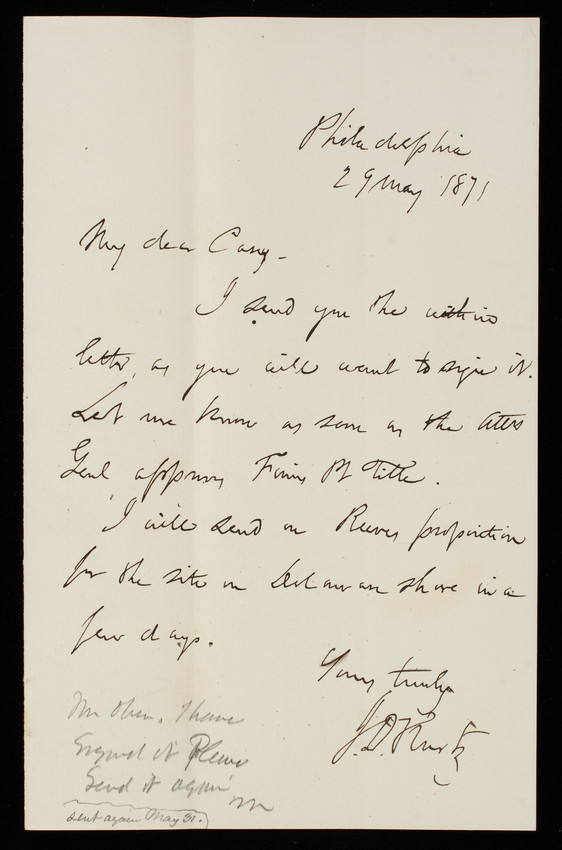 Philadelphia
29 May 1871
My dear Casey -
I send you the within
letter, as you will want to sign it.
Let me know as soon as the Atty
Genl approves Finns Pt Title.
I will send on Reeves proposition
for the site on Delaware shore in a
few days.
Yours truly
J.D. Kurtz
I have
Signed it Please
Send it again
sent again May 31.